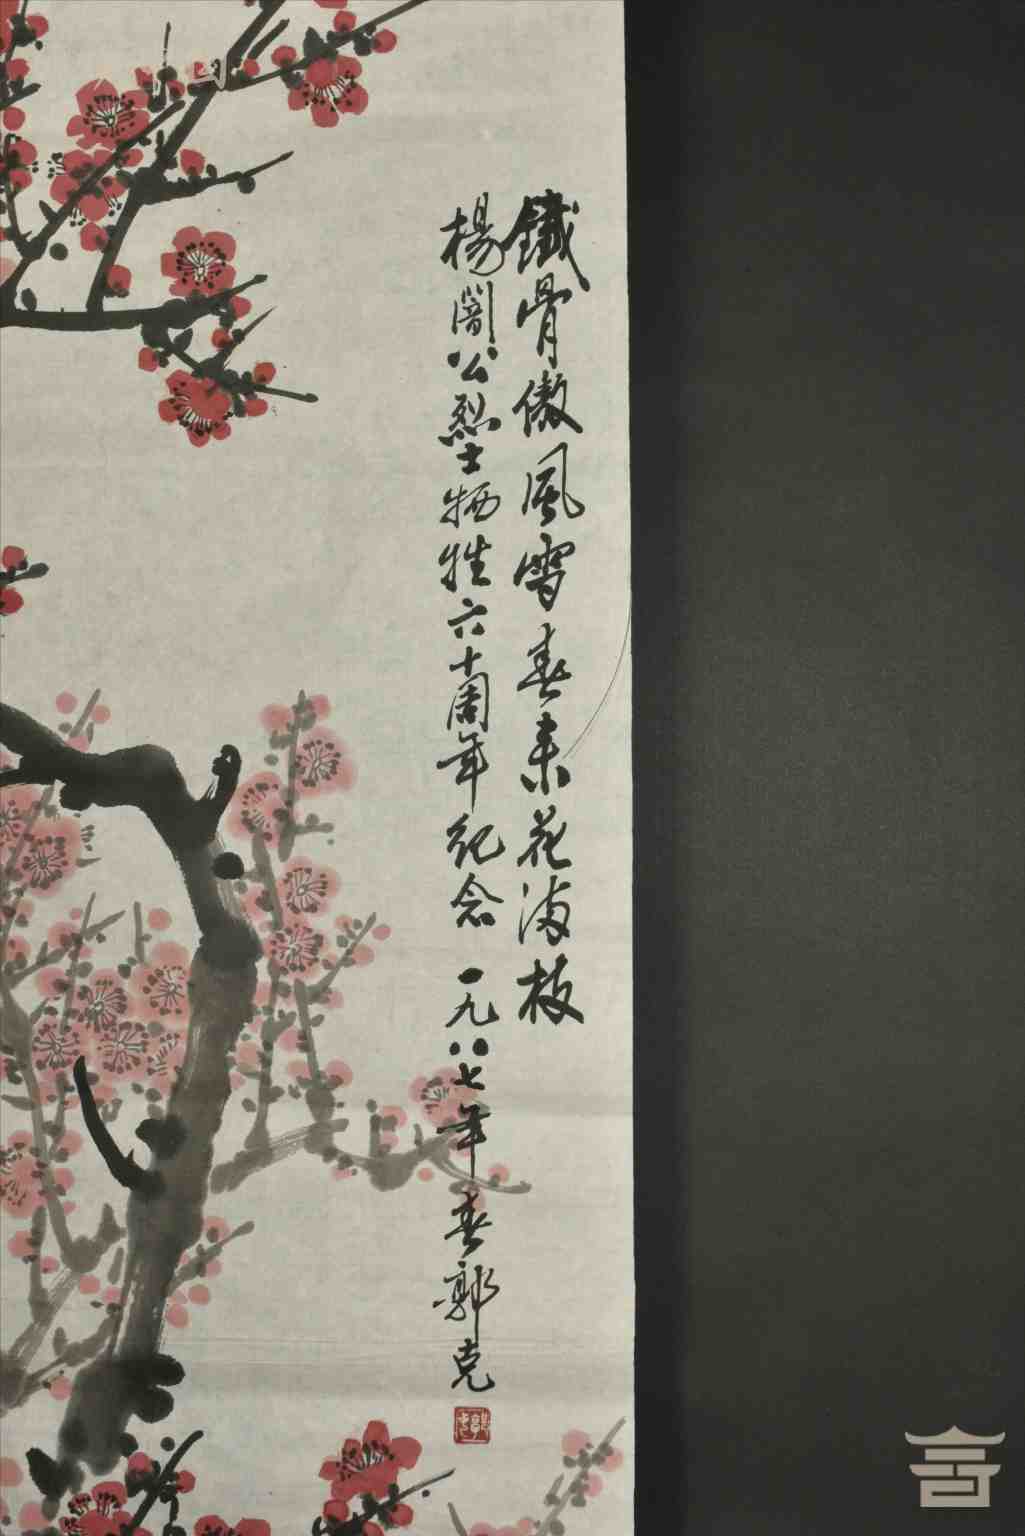 鐵骨傲風雪春来花滿枝
楊闇公烈士牺牲六十周年纪念 一九八七年春郭克